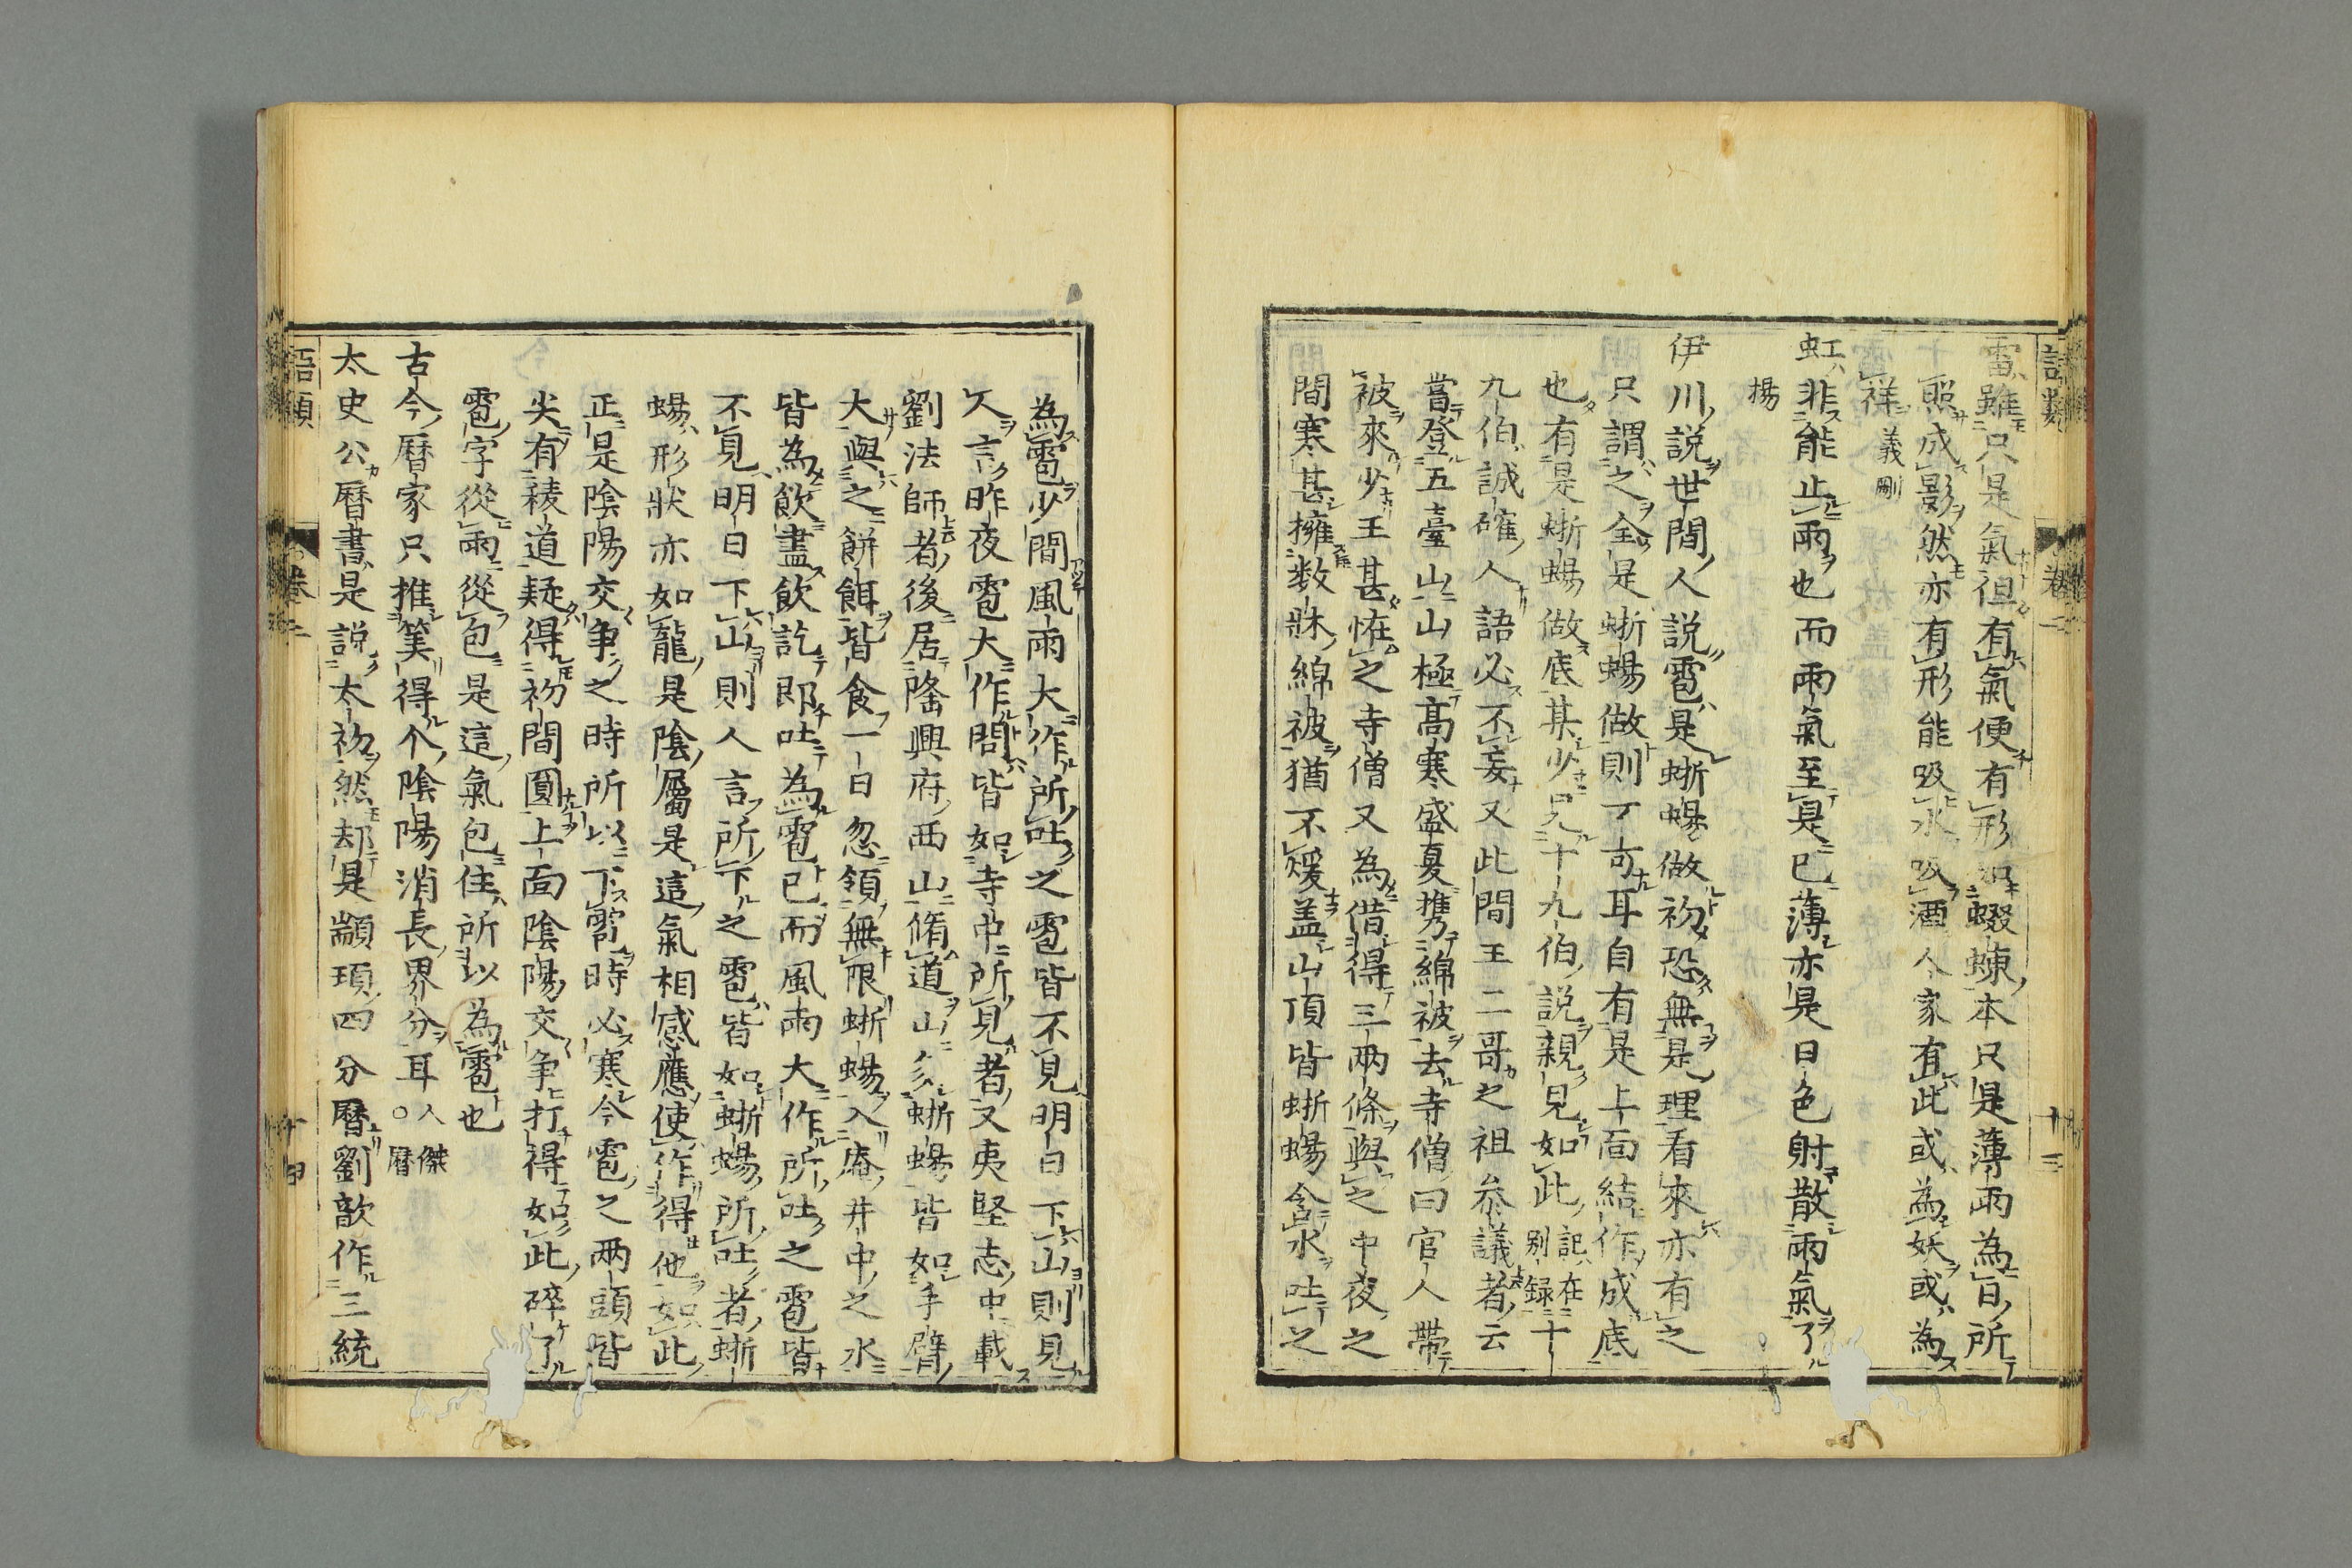 語類 卷二 十三
雷雖只是氣但有氣便有形如蝃蝀本只是薄雨為日所
照成影然亦有形能吸水吸酒人家有此或為妖或為
祥義剛
虹非能止雨也而雨氣至是已薄亦是日色射散雨氣了
揚
伊川說世間人說雹是蜥蜴做初恐無是理看來亦有之
只謂之全是蜥蜴做則不可耳自有是上面結作成底
也有是蜥蜴做底某少見十九伯說親見如此記在別録十
九伯誠確人語必不妄又此間王二哥之祖参議者云
嘗登五臺山山極高寒盛夏携綿被去寺僧曰官人帶
被來少王甚恠之寺僧又為借得三兩條與之中夜之
間寒甚擁数牀綿被猶不煖盖山頂皆蜥蜴含水吐之
為雹少間風雨大作所吐之雹皆不見明日下山則見
人言昨夜雹大作問皆如寺中所見者又夷堅志中載
劉法師者後居隆興府西山脩道山多蜥蜴皆如手臂
大與之餅餌皆食一日忽領無限蜥蜴入庵井中之水
皆為飲盡飲訖即吐為雹已而風雨大作所吐之雹皆
不見明日下山則人言所下之雹皆如蜥蜴所吐者蜥
蜴形狀亦如龍是陰屬是這氣相感應使作得他如此
正是陰陽交争之時所以下雹時必寒今雹之兩頭皆
尖有稜道疑得初間圓上面陰陽交争打得如此碎了
雹字從雨從包是這氣包住所以為雹也
古今曆家只推筭得个陰陽消長界分耳人傑○曆
太史公曆書是説太初然却是顓頊四分曆劉歆作三統
語類 卷二 十四